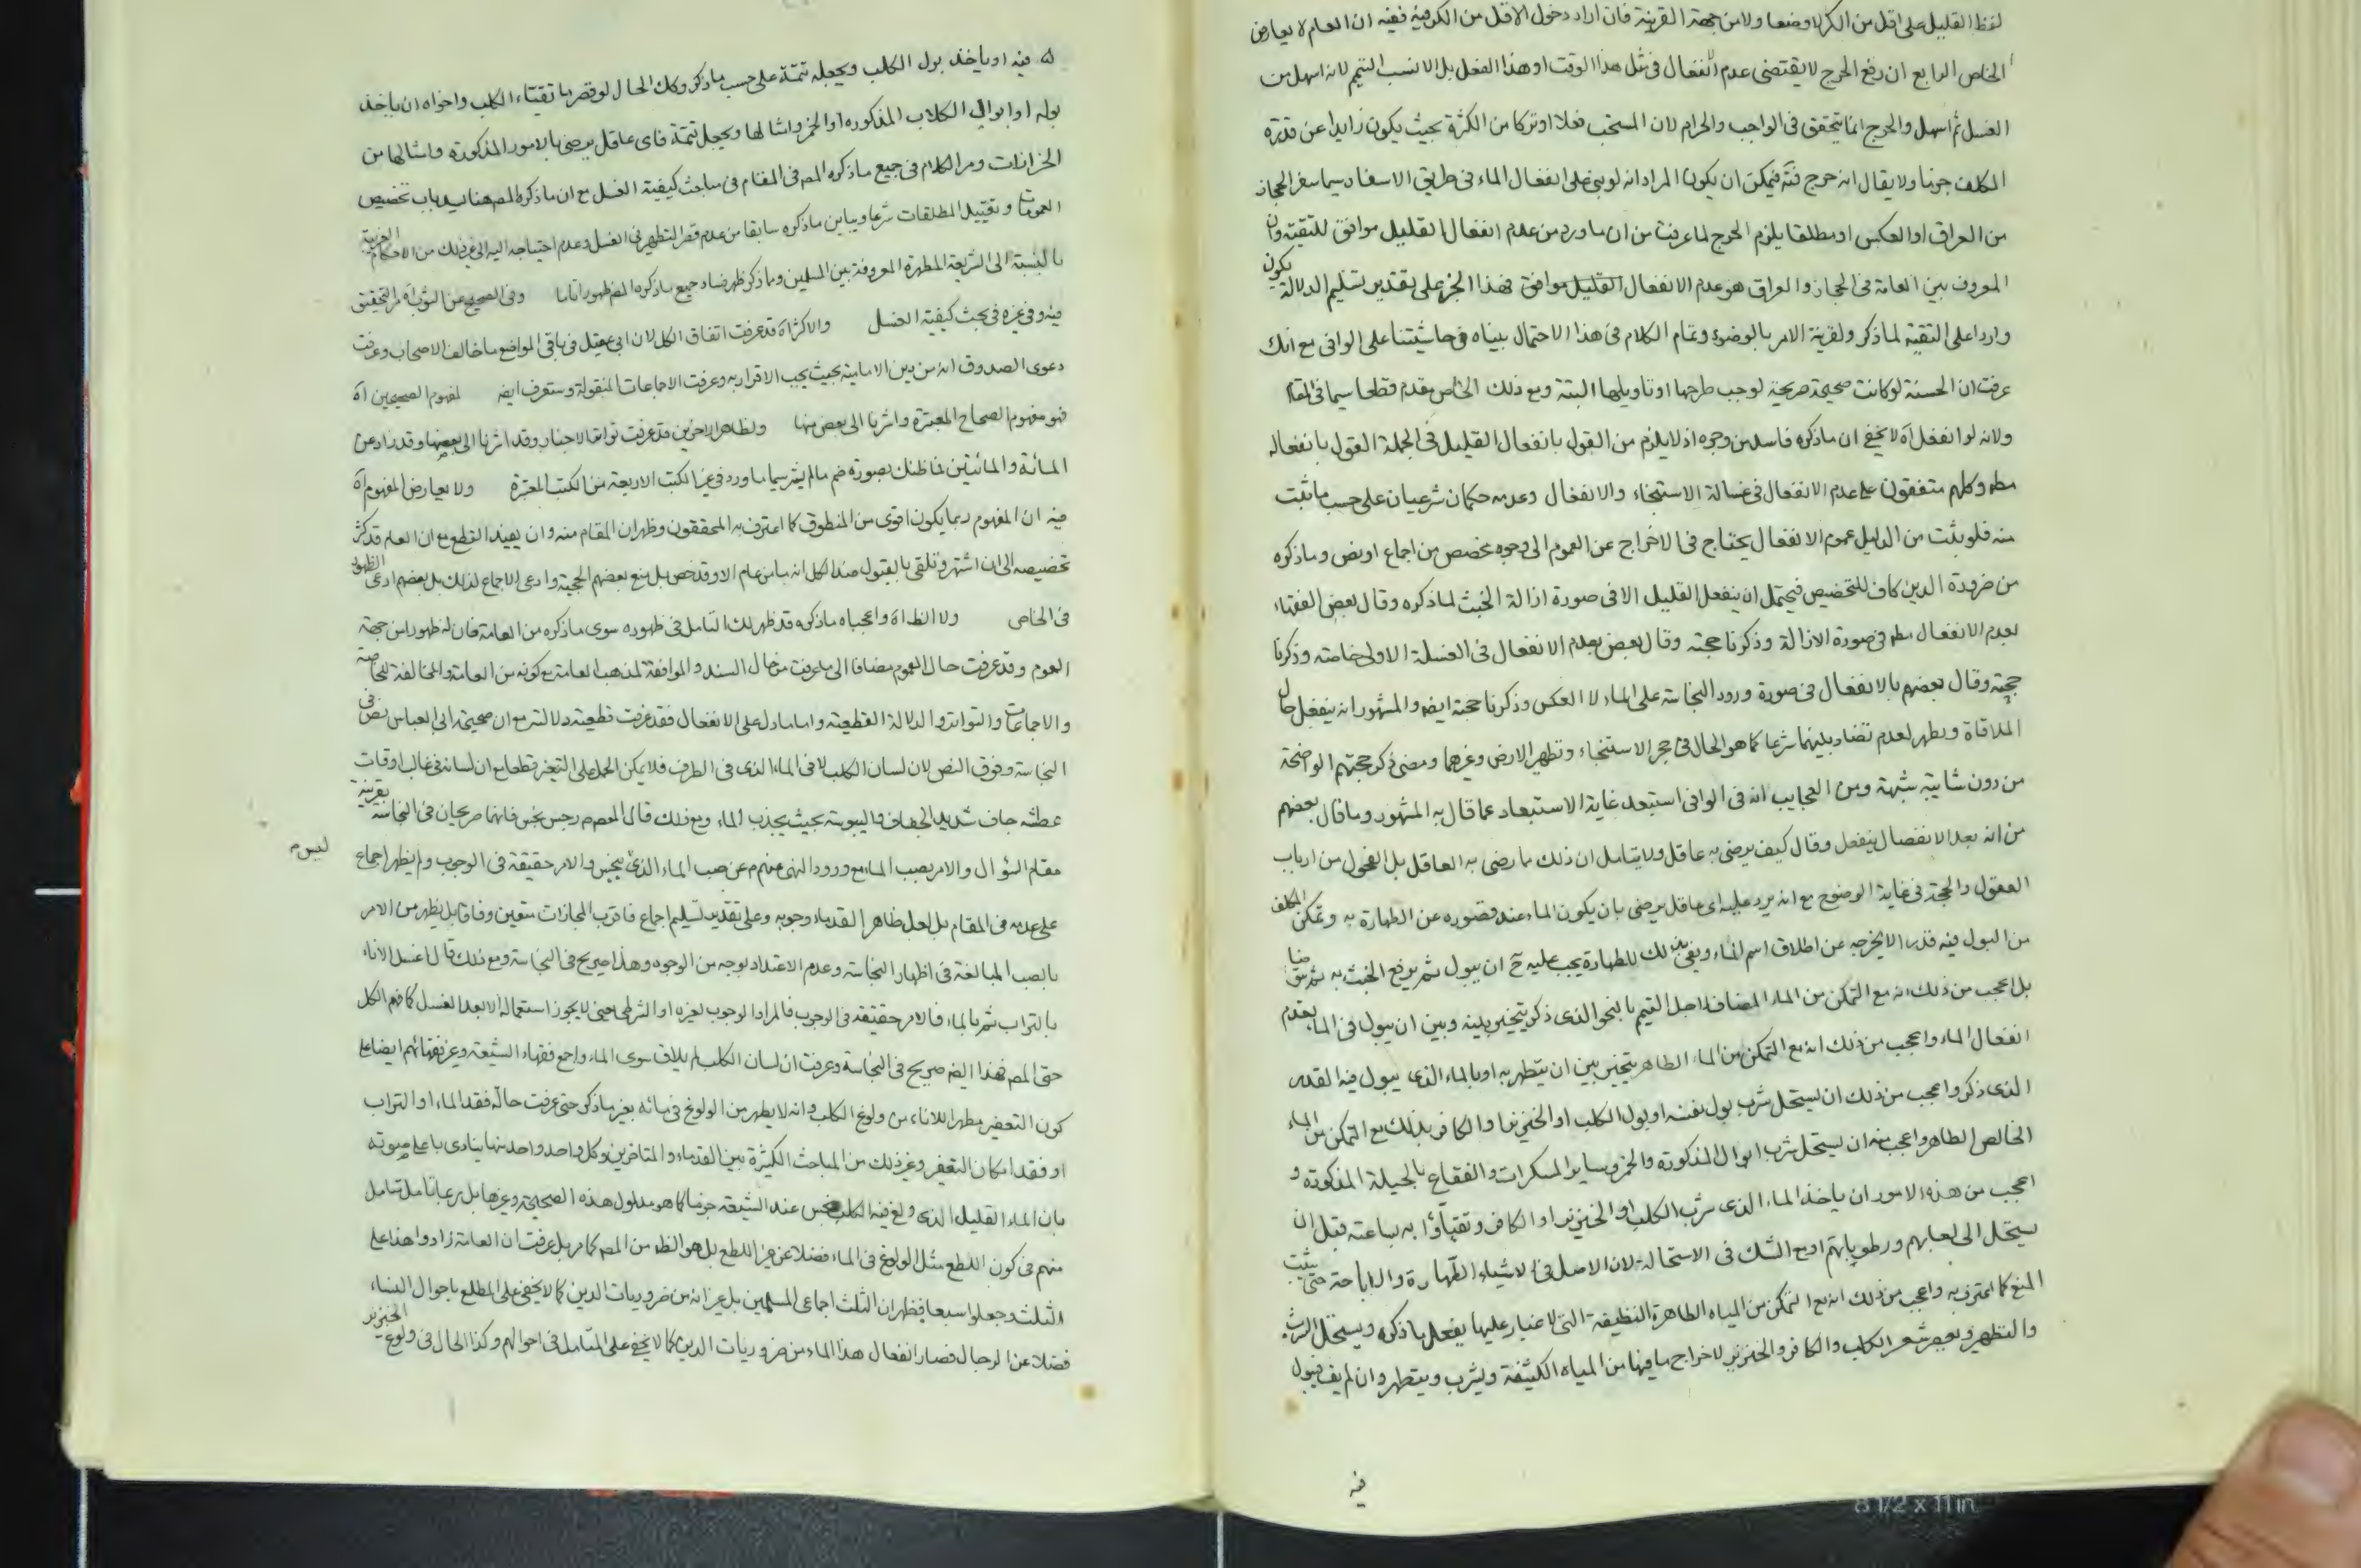 لفظ القليل على اقل من الكر لا وضعا ولا من جهة القرينة فان اراد دخول الاقل من الكر فيه ففيه ان العام لا يعارض
الخاص الرابع ان رفع الحرج لا يقتضى عدم انفعال فى مثل هذا الوقت او هذا الفعل بل الانسب التيمم لانه اسهل من
الغسل ثم اسهل والحرج انما يتحقق فى الواجب والحرام لان المستحب فعلا او تركا من الكثرة بحيث يكون زايدا عن قدرة
المكلف جزما ولا يقال انه حرج فت فيمكن ان يكون المراد انه لو بنى على انفعال الماء فى طريق الاسفار سيما سفر الحجاز
من العراق او العكس او مطلقا يلزم الحرج لما عرفت من ان ما ورد من عدم انفعال القليل موافق للتقية وان
المعروف بين العامة فى الحجاز والعراق هو عدم الانفعال القليل موافق فهذا الخبر على تقدير تسليم الدلالة يكون
واردا على التقية لما ذكر ولقرينة الامر بالوضوء وتمام الكلام فى هذا الاحتمال بيناه فى حاشيتنا على الوافى مع انك
عرفت ان الحسنة لو كانت صحيحة صريحة لوجب طرحها او تاويلها البتة ومع ذلك الخاص مقدم قطعا سيما فى المقام
ولانه لو انفعل آه لا يخفى ان ما ذكره فاسد من وجوه اذ لا يلزم من القول بانفعال القليل فى الجملة القول بانفعاله
مطم وكلهم متفقون على عدم الانفعال فى غسالة الاستنجاء والانفعال وعدمه حكمان شرعيان على حسب ما ثبت
منه فلو ثبت من الدليل عموم الانفعال يحتاج فى الاخراج عن العموم الى وجود مخصص من اجماع او نص وما ذكره
من ضرورة الدين كاف للتخصيص فيحتمل ان ينفعل القليل الا فى صورة ازالة الخبث لما ذكره وقال بعض الفقهاء
بعدم الانفعال مطم فى صورة الازالة وذكرنا حجته وقال بعض بعدم الانفعال فى الغسلة الاولى خاصته وذكرنا
حجته وقال بعضهم بالانفعال فى صورة ورود النجاسة على الماء لا العكس وذكرنا حجته ايضا والمشهور انه ينفعل حال
الملاقاة ويطهر لعدم تضاد بينهما شرعا كما هو الحال فى حجر الاستنجاء وتطهير الارض وغيرهما ومضى ذكر حجتهم الواضحة
من دون شايبة شبهة ومن العجايب انه فى الوافى استبعد غاية الاستبعاد عما قال به المشهور وما قال بعضهم
من انه بعد الانفصال ينفعل وقال كيف يرضى به عاقل ولا يتامل ان ذلك ما رضى به العاقل بل الفحول من ارباب
العقول والحجة فى غاية الوضوح مع انه يرد عليه اى عاقل يرضى بان يكون الماء عند قصوره عن الطهارة به وتمكن المكلف
من البول فيه قدرا لا يخرجه عن اطلاق اسم الماء ويفى بذلك للطهارة يجب عليه ح ان يبول ثم يرفع الخبث به
بل اعجب من ذلك انه مع التمكن من الماء المضاف لاجل التتميم بالنحو الذى ذكر يتخير بينه وبين ان يبول فى الماء بعدم
انفعال الماء واعجب من ذلك انه مع التمكن من الماء الطاهر يتخير بين ان يتطهر به او بالماء الذى يبول فيه القدر
الذى ذكر واعجب من ذلك ان يستحل شرب بول نفسه او بول الكلب او الخنزير او الكافر بذلك مع التمكن من الماء
الخالص الطاهر واعجب منه ان يستحل شرب ابوال المذكورة والخمر وساير المسكرات والفقاع بالحيلة المذكورة و
اعجب من هذه الامور ان ياخذ الماء الذى شرب الكلب او الخنزير او الكافر وتقيأوا به بساعته قبل ان
يستحل الى لعابهم ورطوباتهم او مع الشك فى الاستحالة لان الاصل فى الاشياء الطهارة والاباحة حتى يثبت
المنع كما اعترف به واعجب من ذلك انه مع التمكن من المياه الطاهرة النظيفة التى لا غبار عليها يفعل ما ذكره ويستحل الشرب
والتطهير ويعصر شعر الكلب والكافر والخنزير لاخراج ما فيها من المياه الكثيفة ويشرب ويتطهر وان لم يف فيبول
فيه
فيه او ياخذ بول الكلب ويجعله تتمة على حسب ما ذكر وكك الحال لو قصر ما تقيئاه الكلب واخواه ان ياخذ
بوله او ابوال الكلاب المذكورة او الخمر وامثالها ويجعل تتمة فاى عاقل يرضى بالامور المذكورة وامثالها من
الخزافات ومر الكلام فى جميع ما ذكره المص فى المقام فى مباحث كيفية الغسل مع ان ما ذكره المص هنا يسد باب تخصيص
العمومات وتقييد المطلقات شرعا ويباين ما ذكره سابقا من عدم قصر التطهير فى الغسل وعدم احتياجه اليه الى غير ذلك من الاحكام الغريبة
بالنسبة الى الشريعة المطهرة المعروفة بين المسلمين وما ذكر ظهر فساد جميع ما ذكره المص ظهورا تاما وفى الصحيح عن الثوب آه مر التحقيق
فيه وفى غيره فى بحث كيفية الغسل والاكثر آه قد عرفت اتفاق الكل لان ابى عقيل فى باقى المواضع ما خالف الاصحاب وعرفت
دعوى الصدوق انه من دين الامامية بحيث يجب الاقرار به وعرفت الاجماعات المنقولة وستعرف ايضا لمفهوم الصحيحين آه
فهو مفهوم الصحاح المعتبرة واشرنا الى بعض منها ولظاهر الاخرين قد عرفت تواتر الاخبار وقد اشرنا الى بعضها وقد زاد عن
المائة والمائتين فما ظنك بصورة ضم ما لم يشر سيما ما ورد فى غير الكتب الاربعة من الكتب المعتبرة ولا يعارض المفهوم آه
فيه ان المفهوم ربما يكون اقوى من المنطوق كما اعترف به المحققون وظهر ان المقام منه وان يفيد القطع مع ان العام قد كثر
تخصيصه الى ان اشتهر وتلقى بالقبول عند الكل انه ما من عام الا وقد خص بل منع بعضهم الحجية وادعى الاجماع لذلك بل بعضهم ادعى الظهور
فى الخاص ولا الظ آه واعجباه ما ذكره قد ظهر لك التامل فى ظهوره سوى ما ذكره من العامة فان له ظهورا من جهة
العموم وقد عرفت حال العموم مضافا الى ما عرفت من حال السند والموافقة لمذهب العامة مع كونه من العامة والمخالفة للخاصة
والاجماعات والتواتر والدلالة القطعية واما ما دل على الانفعال فقد عرفت قطعية دلالته مع ان صحيحة ابى العباس نص فى
النجاسة وفوق النص لان لسان الكلب لاقى الماء الذى فى الظرف فلا يمكن الحمل على التغير قطعا مع ان لسانه فى غالب اوقات
عطشه جاف شديد الجفاف واليبوسة بحيث يجذب الماء ومع ذلك قال المعصوم رجس نجس فانهما صريحان فى النجاسة بقرينة
مقام السؤال والامر بصب الماء مع ورود النهى منهم عن صب الماء الذى ليس بنجس والامر حقيقة فى الوجوب ولم يظهر اجماع
على عدمه فى المقام بل لعل ظاهر القدماء وجوبه وعلى تقدير تسليم اجماع فاقرب المجازات متعين وفاقا بل يظهر من الامر
بالصب المبالغة فى اظهار النجاسة وعدم الاعتداد بوجه من الوجوه وهذا صريح فى النجاسة ومع ذلك قال اغسل الاناء
بالتراب ثم بالماء فالامر حقيقة فى الوجوب فالمراد الوجوب لغيره او الشرطى يعنى لا يجوز استعماله الا بعد الغسل كما فهم الكل
حتى المص فهذا ايضا صريح فى النجاسة وعرفت ان لسان الكلب لم يلاق سوى الماء واجمع فقهاء الشيعة وغير فقهائهم ايضا على
كون التعفير مطهرا للاناء من ولوغ الكلب وانه لا يطهر من الولوغ فى مائه بغير ما ذكر حتى عرفت حال فقد الماء او التراب
او فقد امكان التعفير وغير ذلك من المباحث الكثيرة بين القدماء والمتاخرين وكل واحد واحد منها ينادى باعلى صوته
بان الماء القليل الذى ولغ فيه الكلب نجس عند الشيعة جزما كما هو مدلول هذه الصحيحة وغيرها بل ربما تامل تامل
منهم فى كون اللطع مثل الولوغ فى الماء فضلا عن غير اللطع بل هو الظ من المص كما مر بل عرفت ان العامة زادوا هذا على
الثلث وجعلوا سبعا فظهر ان الثلث اجماعى المسلمين بل غير انه من ضروريات الدين كما لا يخفى على المطلع باحوال النساء
فضلا عن الرجال فصار انفعال هذا الماء من ضروريات الدين كما لا يخفى على المتامل فى احوالهم وكذا الحال فى ولوغ الخنزير
8 1/2 x 11 in.